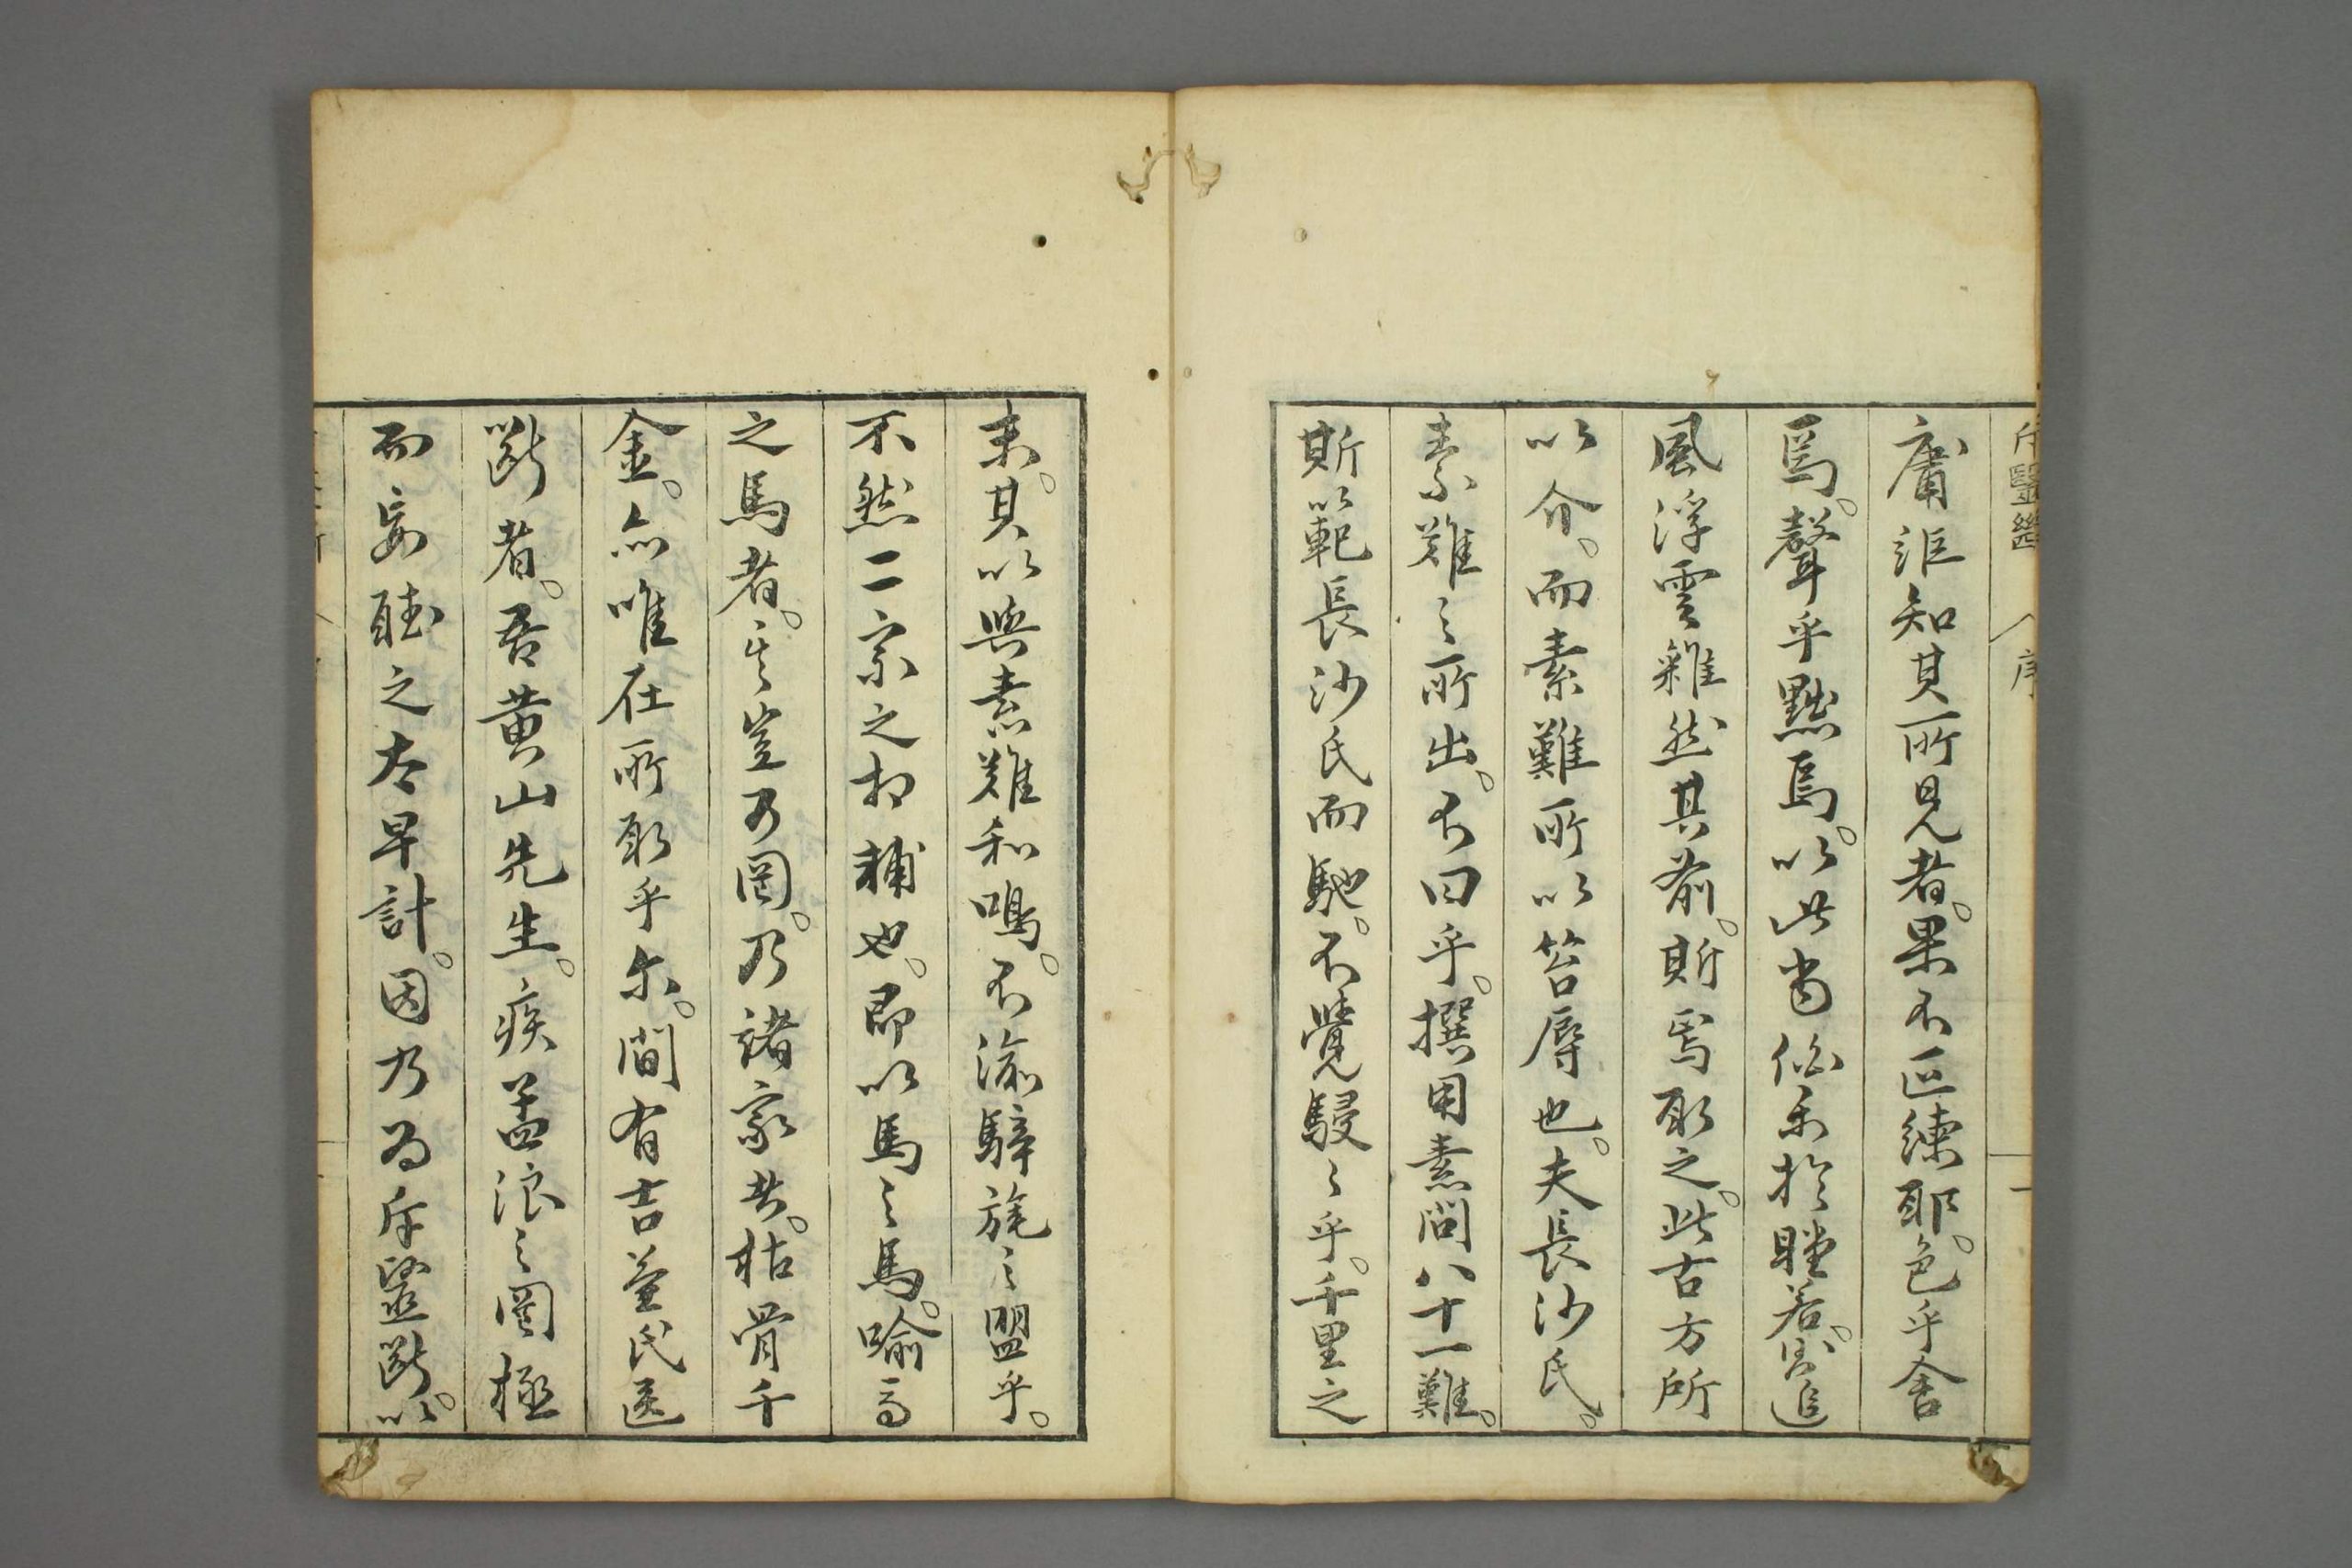 斥醫斷 序 一
庸詎知其所見者。果不匹練耶。色乎舍
焉。聲乎默焉。以此
風浮雲雜然其前。斯焉取之。此古方所
以介。而素難所以答辱也。夫長沙氏。
素難之所出。不曰乎。撰用素問八十一難。
斯以範長沙氏而馳。不覺駸〻乎。千里之
末。其以與素難和鳴。不渝騂旄之盟乎。
不然二宗之相輔也。即以馬之馬。喻
之馬者。豈不罔。乃諸家者。枯骨千
金。亦唯在所取乎尔。間有吉益氏医
斷者。吾黄山先生。疾孟浪之罔極
而妄聴之太早計。因乃為斥醫斷。以